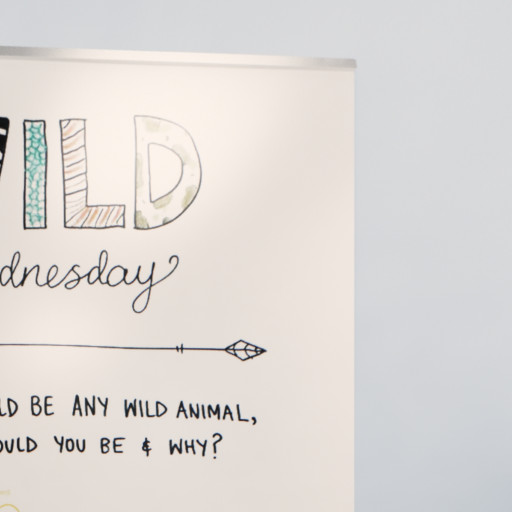 ILD
dnesday
LD BE ANY WILD ANIMAL,
OULD YOU BE & WHY?